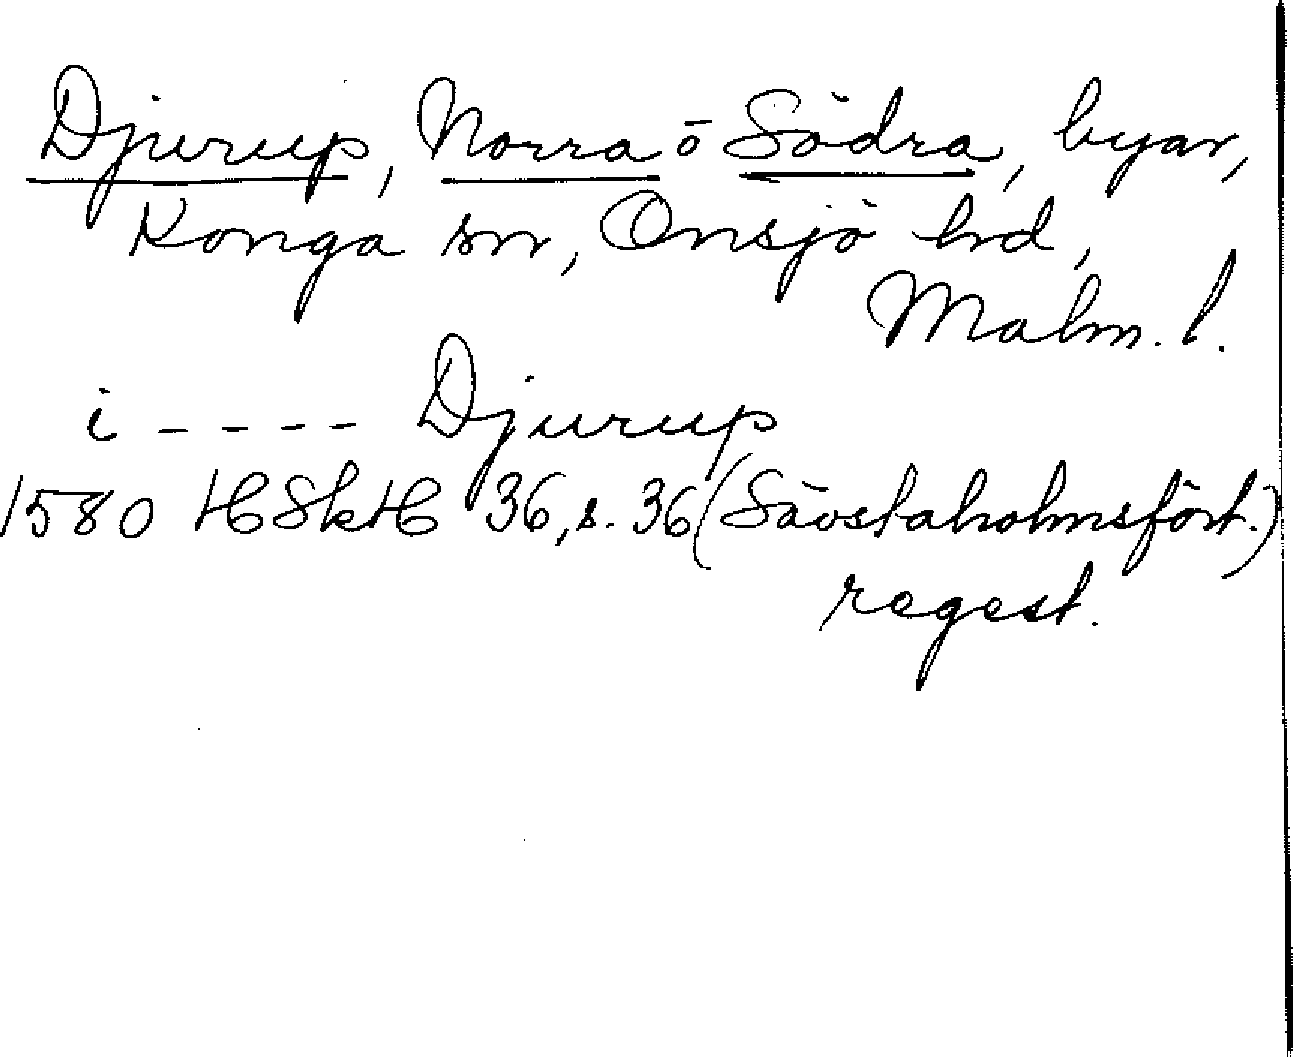 Djurup, Norra ō Södra, byar,
Konga sn, Onsjö hd,
Malm. l.
i ---- Djurup
1580 HSkH 36, s. 36 (Sävstaholmsfört.)
regest.